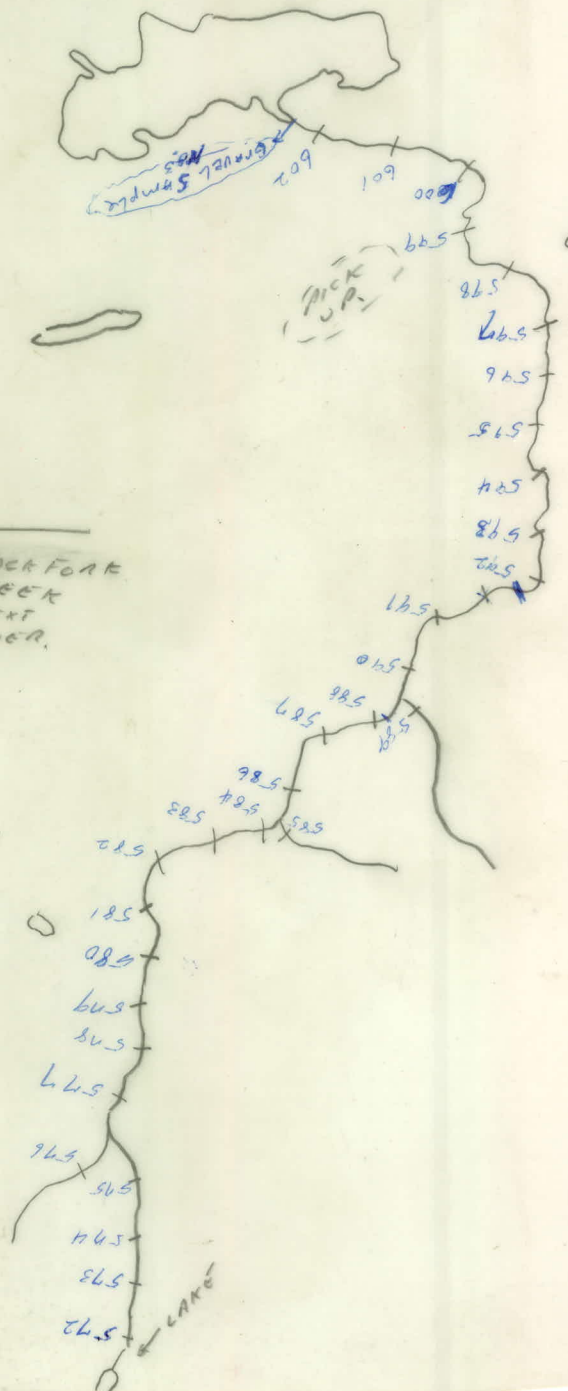 GRAVEL SAMPLE
No 3
602
601
600
599
PICK
UP.
598
597
596
595
594
593
592
591
590
589
588
587
586
585
584
583
582
581
580
579
578
577
576
575
574
573
572
LAKE
CK FORK
EEK
EXT
DER.